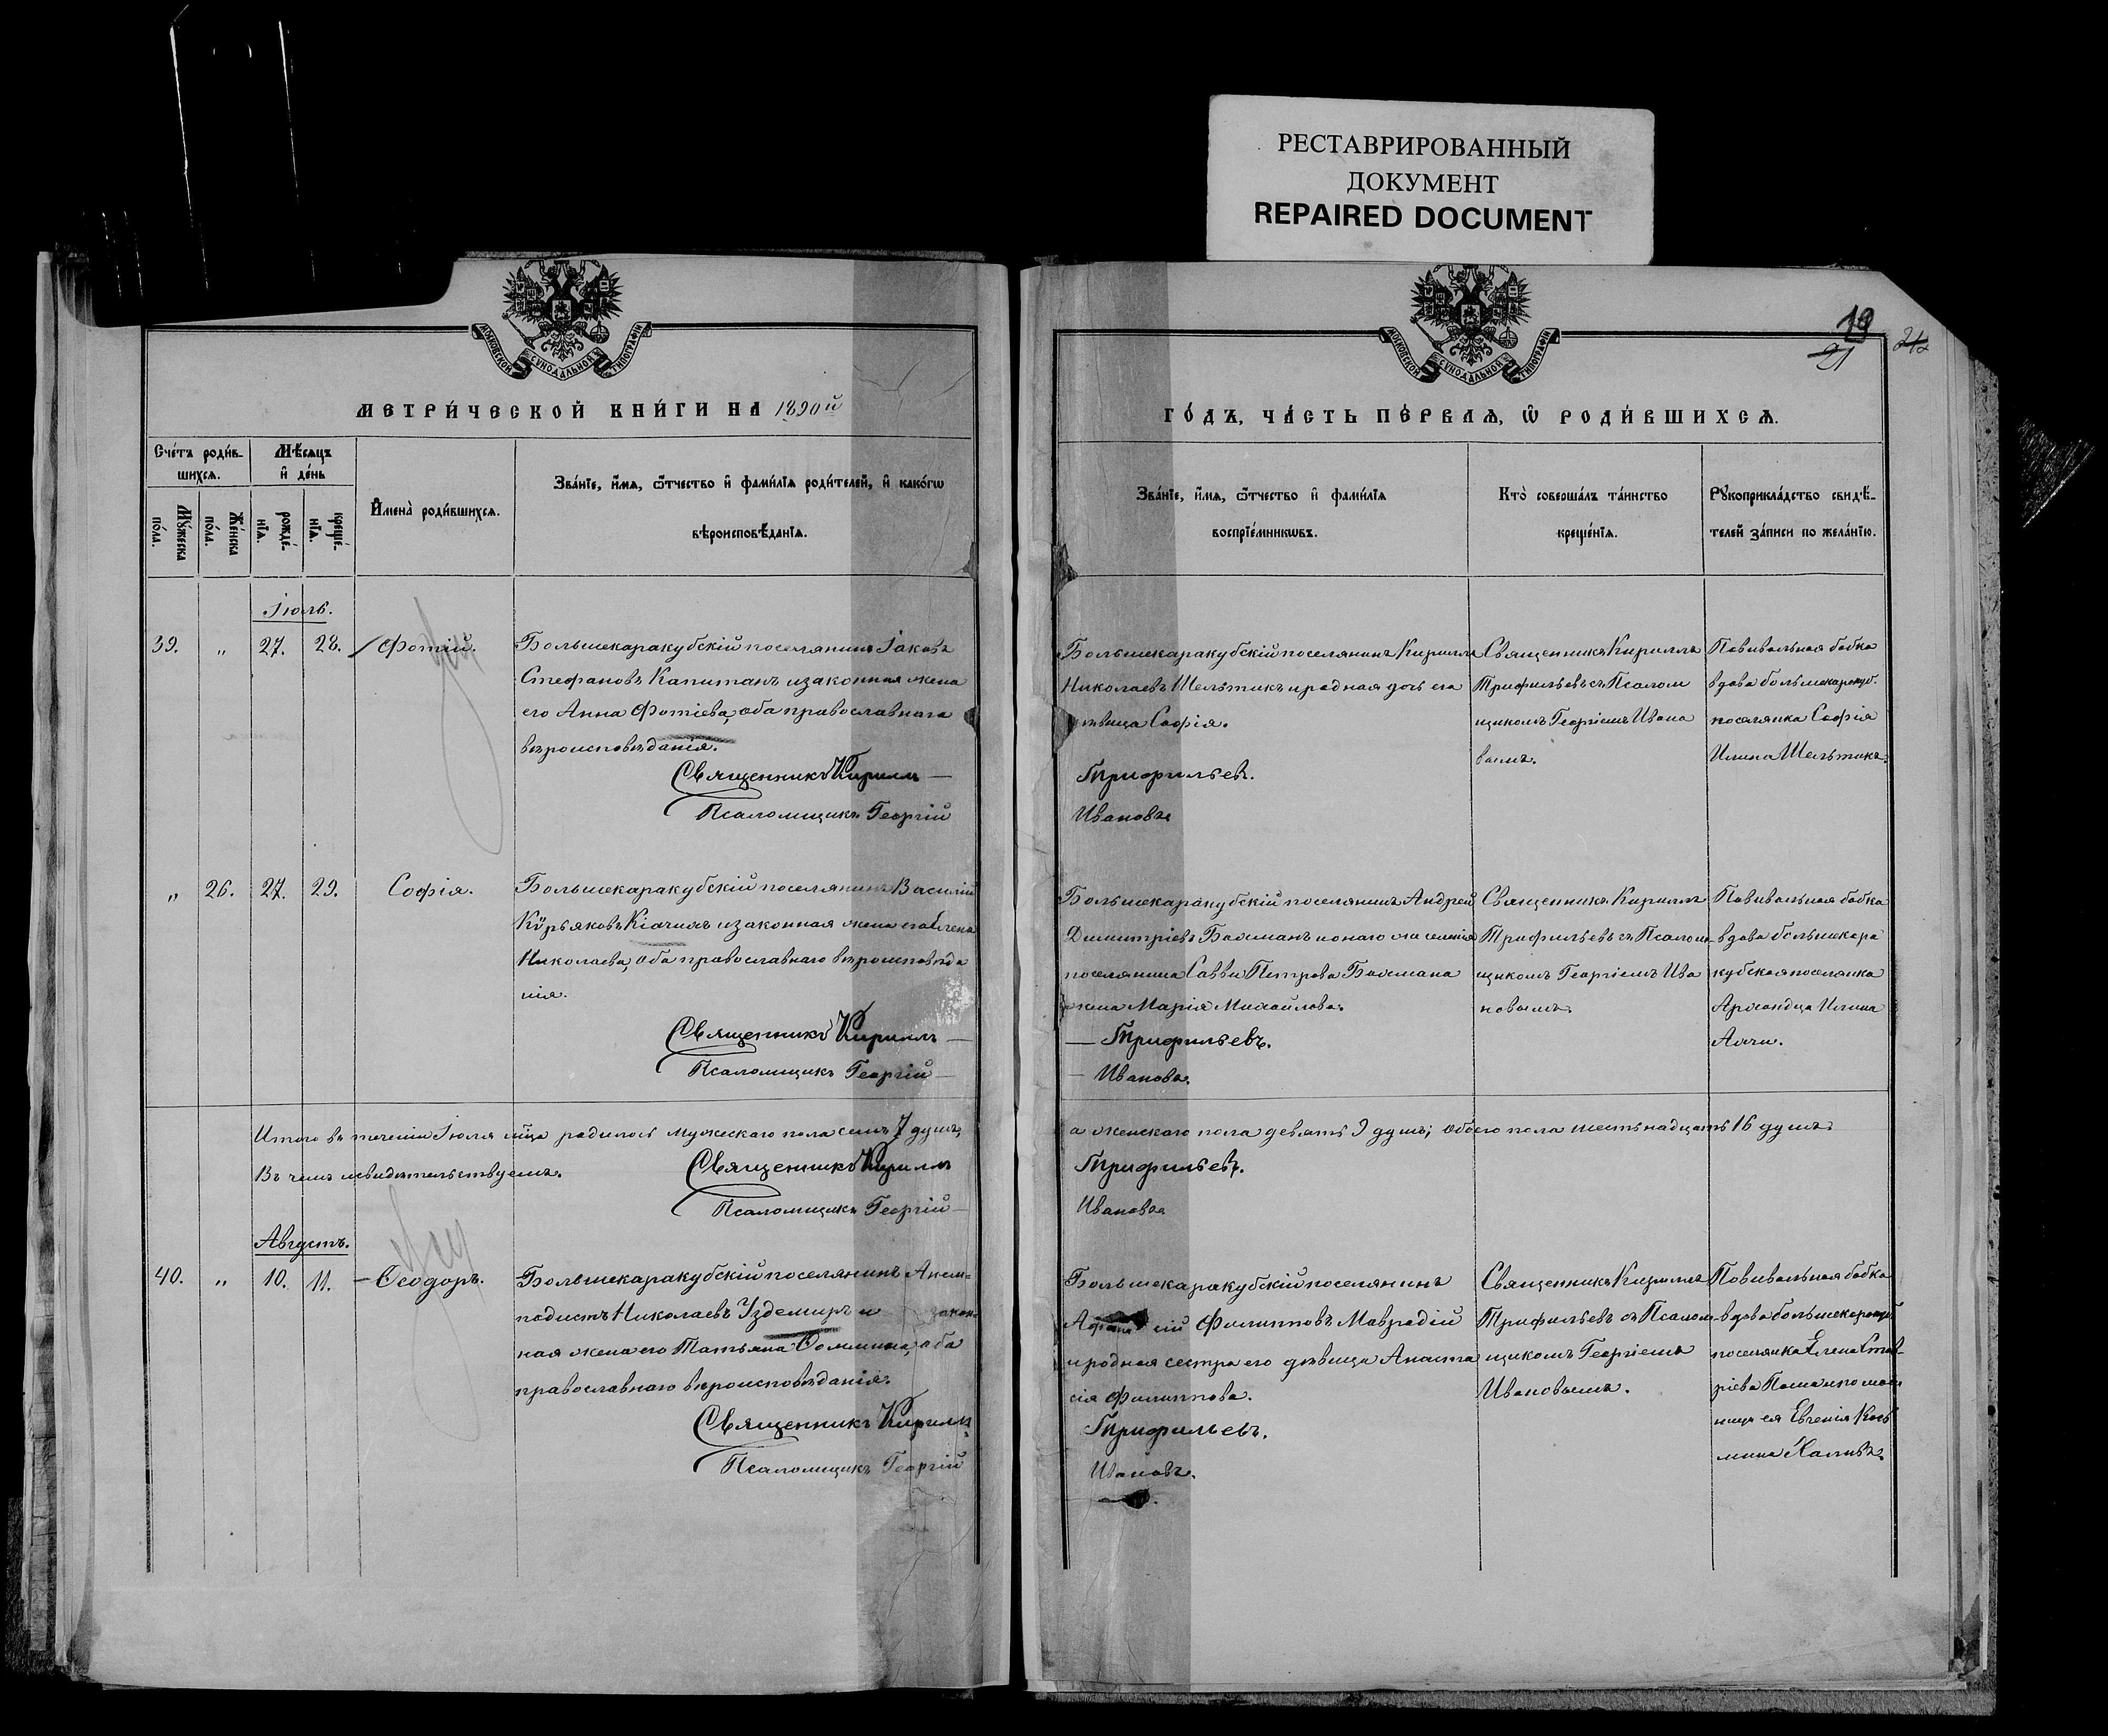 РЕСТАВРИРОВАННЫЙ
ДОКУМЕНТ
REPAIRED DOCUMENT
МОСКОВСКОЙ СѴНОДАЛЬНОЙ ТИПОГРАФІИ
МЕТРИ́ЧЕСКОЙ КНИ́ГИ НА 1890й
Сче́тъ роди́в-
шихсѧ.
Мѣ́сѧцъ
и҆ де́нь
Мꙋ́жеска
по́ла.
Же́нска
по́ла.
рожде́-
нїѧ.
креще́-
нїѧ.
И҆мена̀ роди́вшихсѧ.
Зва́нїе, и҆́мѧ, ѻ҆́тчество и҆ фами́лїѧ роди́телей, и҆ како́гѡ
вѣроисповѣ́данїѧ.
Іюль.
39. " 27. 28. Фотій.
Большекаракубскій поселянинъ Іаковъ
Стефановъ Капитанъ и законная жена
его Анна Фотіева, оба православнаго
вѣроисповѣданія.
Священникъ Кириллъ —
Псаломщикъ Георгій
" 26. 27. 29. Софія.
Большекаракубскій поселянинъ Василій
Кѵрьяковъ и законная жена его Елена
Николаева, оба православнаго вѣроисповѣда
нія.
Священникъ Кириллъ —
Псаломщикъ Георгій —
Итого въ теченіи Іюля мѣсца родилось мужескаго пола семь 7 душъ,
Въ чемъ и свидѣтельствуемъ.
Священникъ Кириллъ
Псаломщикъ Георгій —
Августъ.
40. " 10. 11. — Ѳеодоръ.
Большекаракубскій поселянинъ
Николаевъ Уздемиръ и закон-
ная жена его Татьяна Ѳомина, оба
православнаго вѣроисповѣданія.
Священникъ Кириллъ
Псаломщикъ Георгій
МОСКОВСКОЙ СѴНОДАЛЬНОЙ ТИПОГРАФІИ
19
21
ГО́ДЪ, ЧА́СТЬ ПЕ́РВАѦ, Ѡ҆ РОДИ́ВШИХСѦ.
Зва́нїе, и҆́мѧ, ѻ҆́тчество и҆ фами́лїѧ
воспрїе́мникѡвъ.
Кто̀ соверша́лъ та́инство
креще́нїѧ.
Рꙋкоприкла́дство свидѣ́-
телей за́писи по жела́нїю.
Большекаракубскій поселянинъ Кириллъ
Николаевъ Шельтикъ и родная дочь его
дѣвица Софія.
Трифильевъ.
Ивановъ
Священникъ Кириллъ
Трифильевъ съ Псалом
щикомъ Георгіемъ Ивано
вымъ.
Повивальная бабка
вдова большекаракуб.
поселянка Софія
Ильина Шельтикъ.
Большекаракубскій поселянинъ Андрей
Димитріевъ Бахманъ и онаго же селенія
поселянина Саввы Петрова Бахмана
жена Марія Михайлова.
— Трифильевъ.
— Ивановъ.
Священникъ Кириллъ
Трифильевъ съ Псалом-
щикомъ Георгіемъ Ива
новымъ.
Повивальная бабка
вдова большекара
кубская поселянка
Ильина
а женскаго пола девять 9 душъ; обоего пола шестьнадцать 16 душъ.
Трифильевъ.
Ивановъ
Большекаракубскій поселянинъ
Филипповъ Мавродій
и родная сестра его дѣвица Анаста
сія Филиппова.
Трифильевъ.
Ивановъ.
Священникъ Кириллъ
Трифильевъ съ Псалом-
щикомъ Георгіемъ
Ивановымъ.
Повивальная бабка
вдова большекаракуб.
поселянка Елена
ея Евгенія Косъ
мина